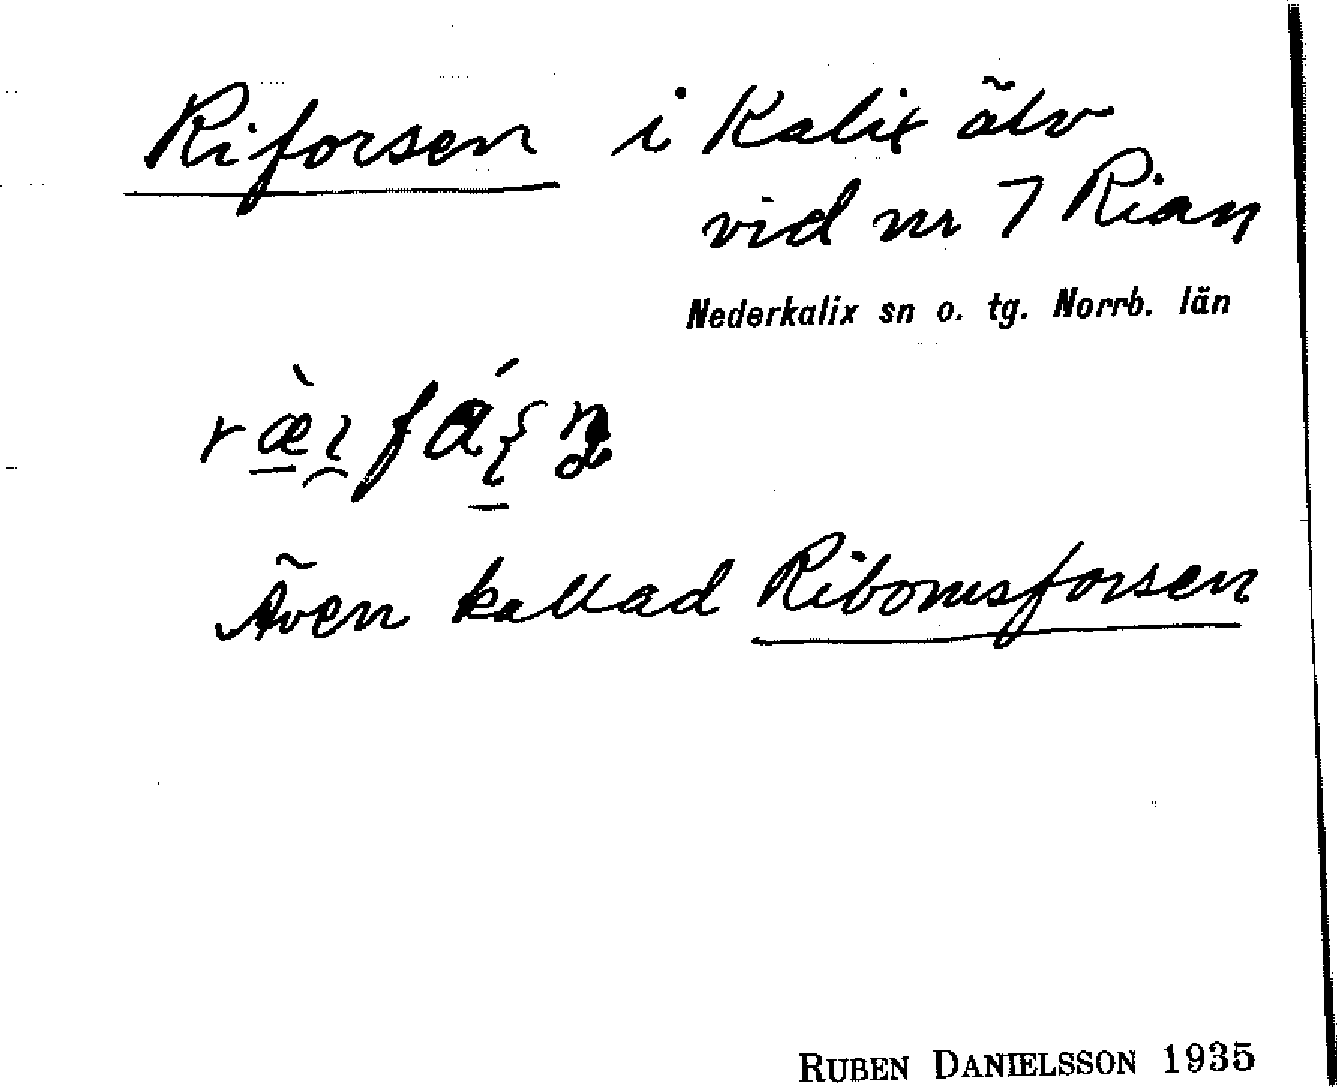 Riforsen i Kalix älv
vid nr 7 Rian
Nederkalix sn o. tg. Norrb. län
Även kallad Ribomsforsen
RUBEN DANIELSSON 1935